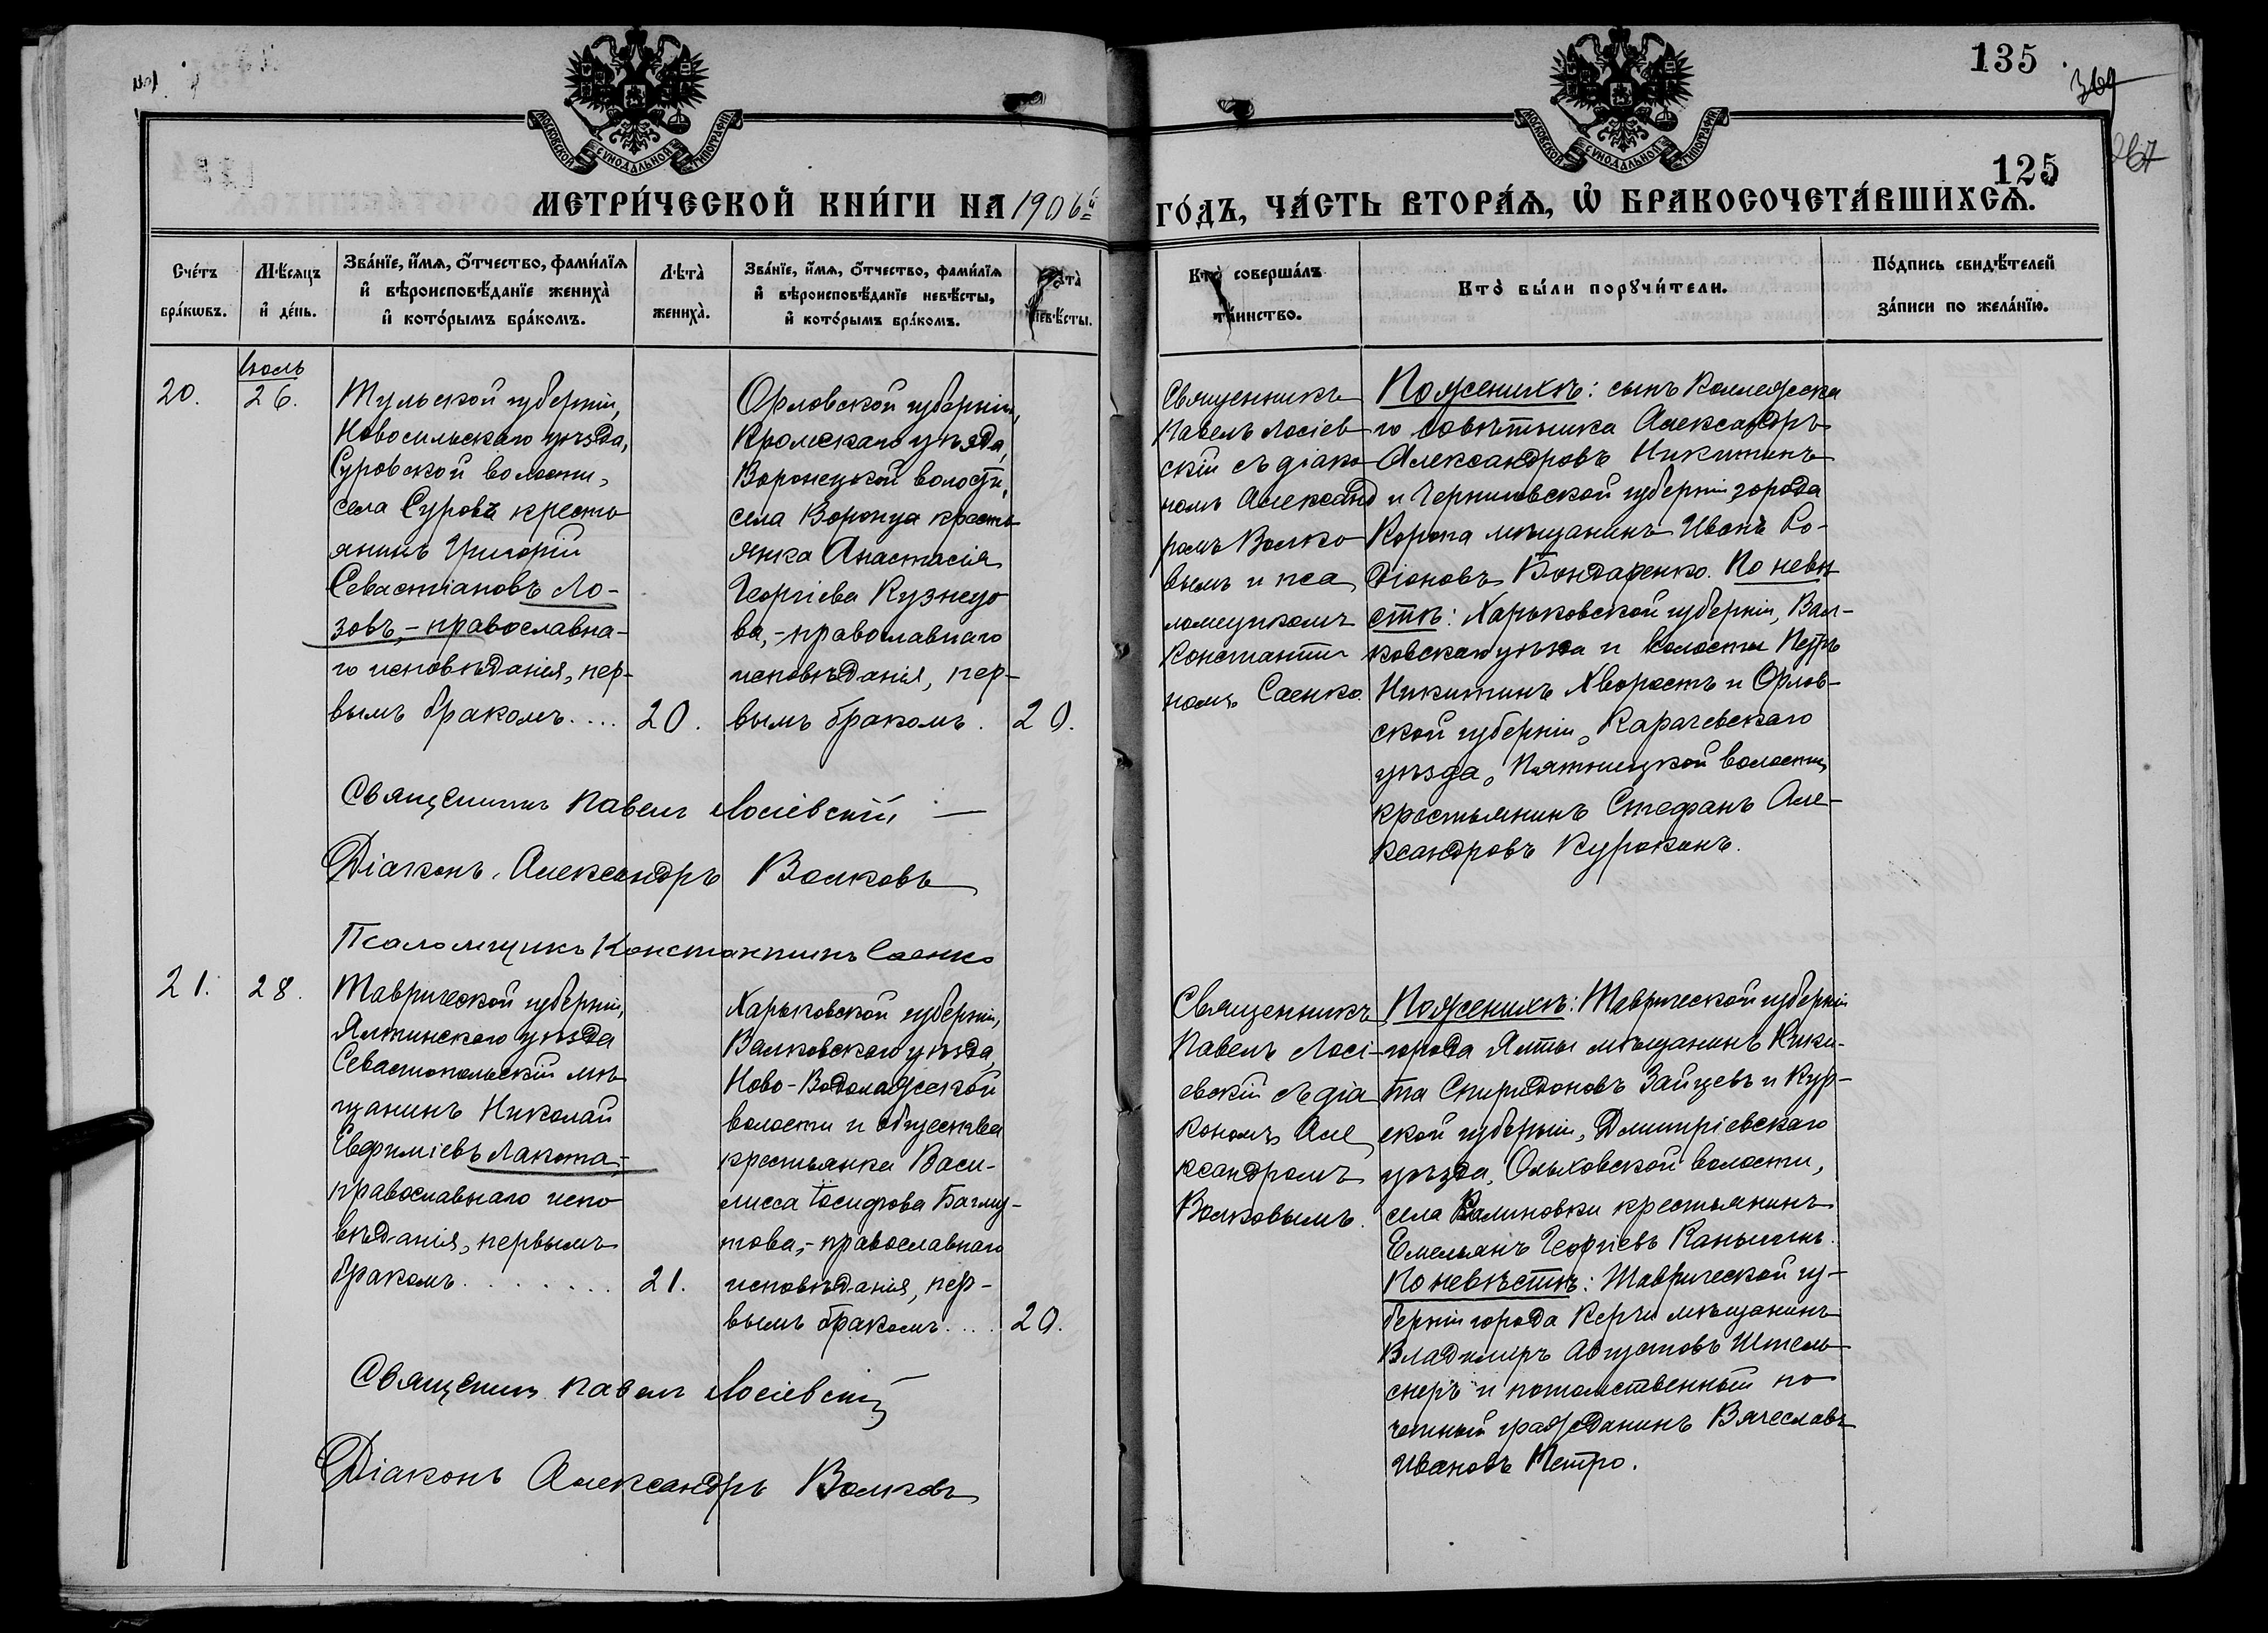 135
369
267
125
МОСКОВСКОЙ СѴНОДАЛЬНОЙ ТИПОГРАФІИ
МОСКОВСКОЙ СѴНОДАЛЬНОЙ ТИПОГРАФІИ
МЕТРИ́ЧЕСКОЙ КНИ́ГИ НА 1906й
ГО́ДЪ, ЧА́СТЬ ВТОРА́Ѧ, Ѽ БРАКОСОЧЕТА́ВШИХСѦ.
Сче́тъ
бра́кѡвъ.
Мѣ́сяцъ
и҆ де́нь.
Зва́нїе, и҆́мя, ѻ҆́тчество, фами́лїя
и҆ вѣроисповѣ́данїе жениха̀
и҆ кото́рымъ бра́комъ.
Лѣта̀
жениха̀.
Зва́нїе, и҆́мя, ѻ҆́тчество, фами́лїя
и҆ вѣроисповѣ́данїе невѣ́сты,
и҆ кото́рымъ бра́комъ.
Лѣта̀
невѣ́сты.
Кто̀ соверша́лъ
та́инство.
Кто̀ бы́ли порꙋчи́тели.
По́дпись свидѣ́телей
за́писи по жела́нїю.
Іюль
20.
26.
Тульской губерніи,
Новосильскаго уѣзда,
Суровской волости,
села Сурова кресть
янинъ Григорій
Севастіановъ Ло-
зовъ,- православна-
го исповѣданія, пер-
вымъ бракомъ....
20.
Орловской губерніи,
Кромскаго уѣзда,
Воронецкой волости,
села Воронца кресть
янка Анастасія
Георгіева Кузнецо
ва,-православнаго
исповѣданія, пер-
вымъ бракомъ.
20.
Священникъ
Павелъ Лосіев
скій съ діако
номъ Александ
ромъ Волко
вымъ и пса
ломщикомъ
Константи
номъ Саенко.
По женихѣ: сынъ Коллежска
го совѣтника Александръ
Александровъ Никитинъ
и Черниговской губерніи города
Коропа мѣщанинъ Иванъ Ро-
діоновъ Бондаренко. По невѣ
стѣ: Харьковской губерніи, Вал-
ковскаго уѣзда и волости Петръ
Никитинъ Хворостъ и Орлов-
ской губерніи, Карачевскаго
уѣзда, Пятницкой волости,
крестьянинъ Стефанъ Але-
ксандровъ Курокинъ.
Священникъ Павелъ Лосіевскій
Діаконъ Александръ Волковъ
Псаломщикъ Константинъ Саенко
21.
28.
Таврической губерніи,
Ялтинскаго уѣзда
Севастопольскій мѣ
щанинъ Николай
Евфиміевъ Лакота,-
православнаго испо
вѣданія, первымъ
бракомъ........
21.
Харьковской губерніи,
Валковскаго уѣзда,
Ново-Водолажской
волости и общества
крестьянка Васи-
лисса Іосифова Баглу-
това,-православнаго
исповѣданія, пер-
вымъ бракомъ....
20.
Священникъ
Павелъ Лосі-
евскій съ діа
кономъ Але
ксандромъ
Волковымъ.
По женихѣ: Таврической губерніи
города Ялты мѣщанинъ Ники-
та Спиридоновъ Зайцевъ и Кур-
ской губерніи, Дмитріевскаго
уѣзда, Ольховской волости,
села Калиновки крестьянинъ
Емельянъ Георгіевъ Каньшинъ.
По невѣстѣ: Таврической гу-
берніи города Керчи мѣщанинъ
Владимиръ Августовъ Штель-
снеръ и потомственный по
четный гражданинъ Вячеславъ
Ивановъ Петро.
Священникъ Павелъ Лосіевскій
Діаконъ Александръ Волковъ